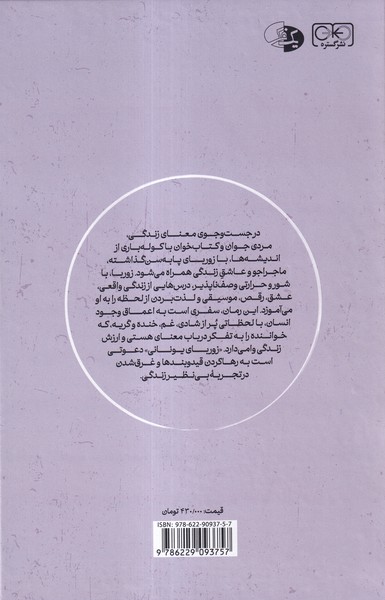 نشر گستره
در جست‌وجوی معنای زندگی،
مردی جوان و کتاب‌خوان با کوله‌باری از
اندیشه‌ها، با زوربای پابه‌سن‌گذاشته،
ماجراجو و عاشقِ زندگی همراه می‌شود. زوربا، با
شور و حرارتی وصف‌ناپذیر، درس‌هایی از زندگی واقعی،
عشق، رقص، موسیقی و لذت‌بردن از لحظه را به او
می‌آموزد. این رمان، سفری است به اعماق وجود
انسان، با لحظاتی پُر از شادی، غم، خنده و گریه، که
خواننده را به تفکر در باب معنای هستی و ارزش
زندگی وامی‌دارد. «زوربای یونانی» دعوتی
است به رهاکردن قیدوبندها و غرق‌شدن
در تجربهٔ بی‌نظیر زندگی.
قیمت: ۴۳۰/۰۰۰ تومان
ISBN: 978-622-90937-5-7
9 786229 093757